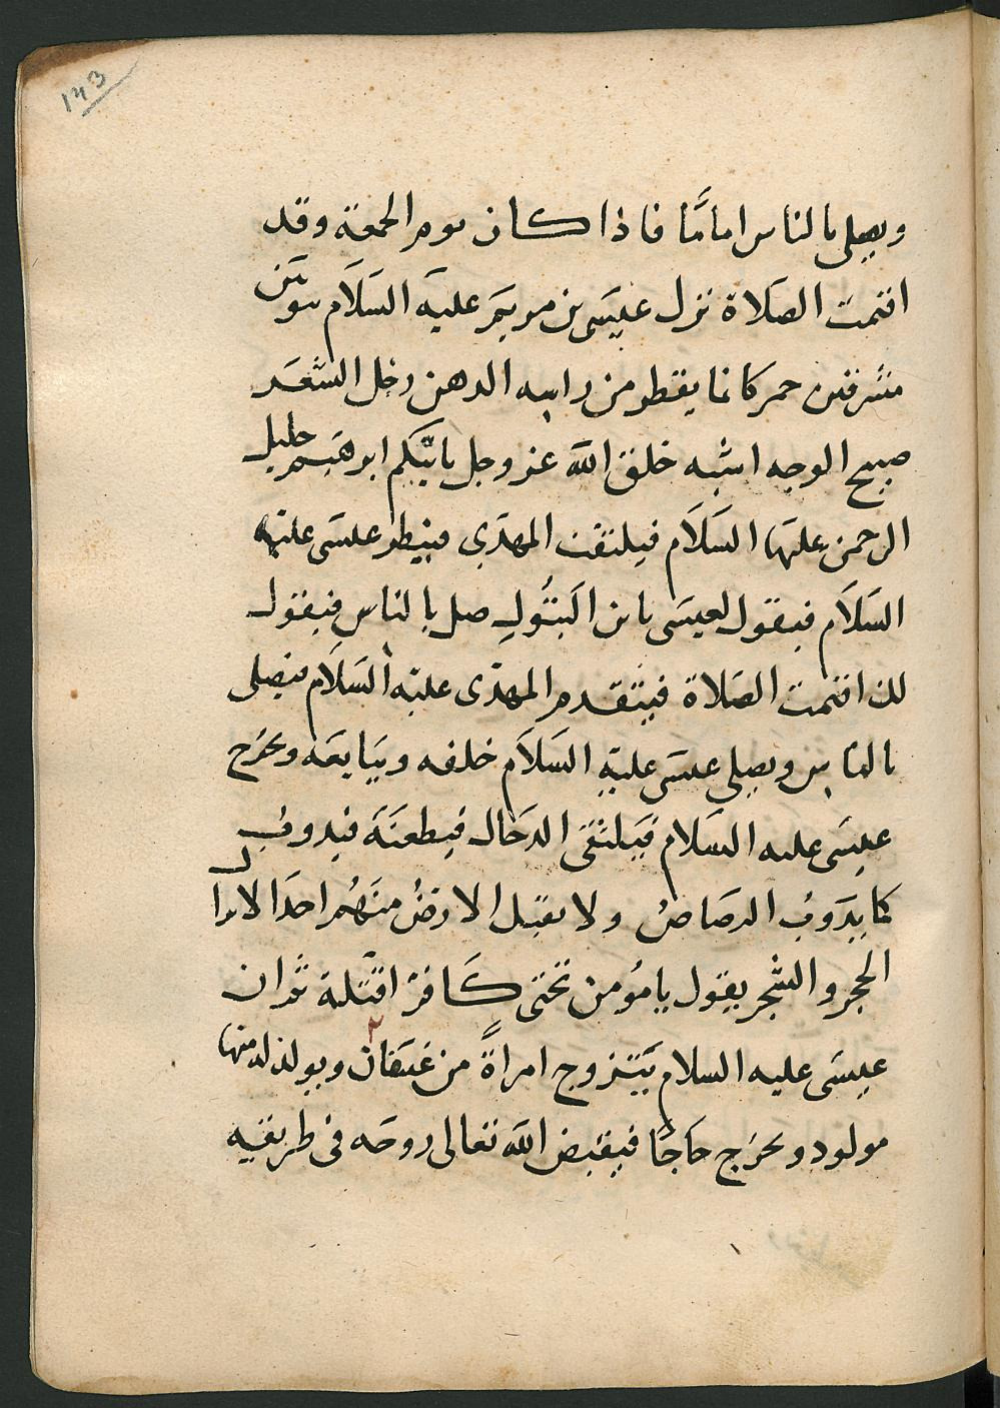 ١٢٣
ويصلي بالناس امامًا فاذا كان يوم الجمعة وقد
اقتمت الصلاة نزل عيسى بن مريم عليه السلام بثوبين
مشرقين حمر كانما يقطر من راسه الدهن رجل الشعر
صبيح الوجه اشبه خلق الله عز وجل بابيكم ابرهيم خليل
الرحمن عليهما السلام فيلتفت المهدي فينظر عيسى عليه
السلام فيقول لعيسى يا بن البتول صل بالناس فيقول
لك اقتمت الصلاة فيتقدم المهدى عليه السلام فيصلى
بالناس ويصلى عيسى عليه السلام خلفه ويبايعه ويخرج
عيسى عليه السلام فيلتقى الدجال فيطعنه فيدوب
كما يدوب الرصاص ولا تقبل الارض منهم احدا لا يزال
الحجر والشجر يقول يا مؤمن تحتى كافر اقتله ثم ان
عيسى عليه السلام يتزوج امراة من غسان ويولد له منها
مولود ويخرج حاجًا فيقبض الله تعالى روحه فى طريقه